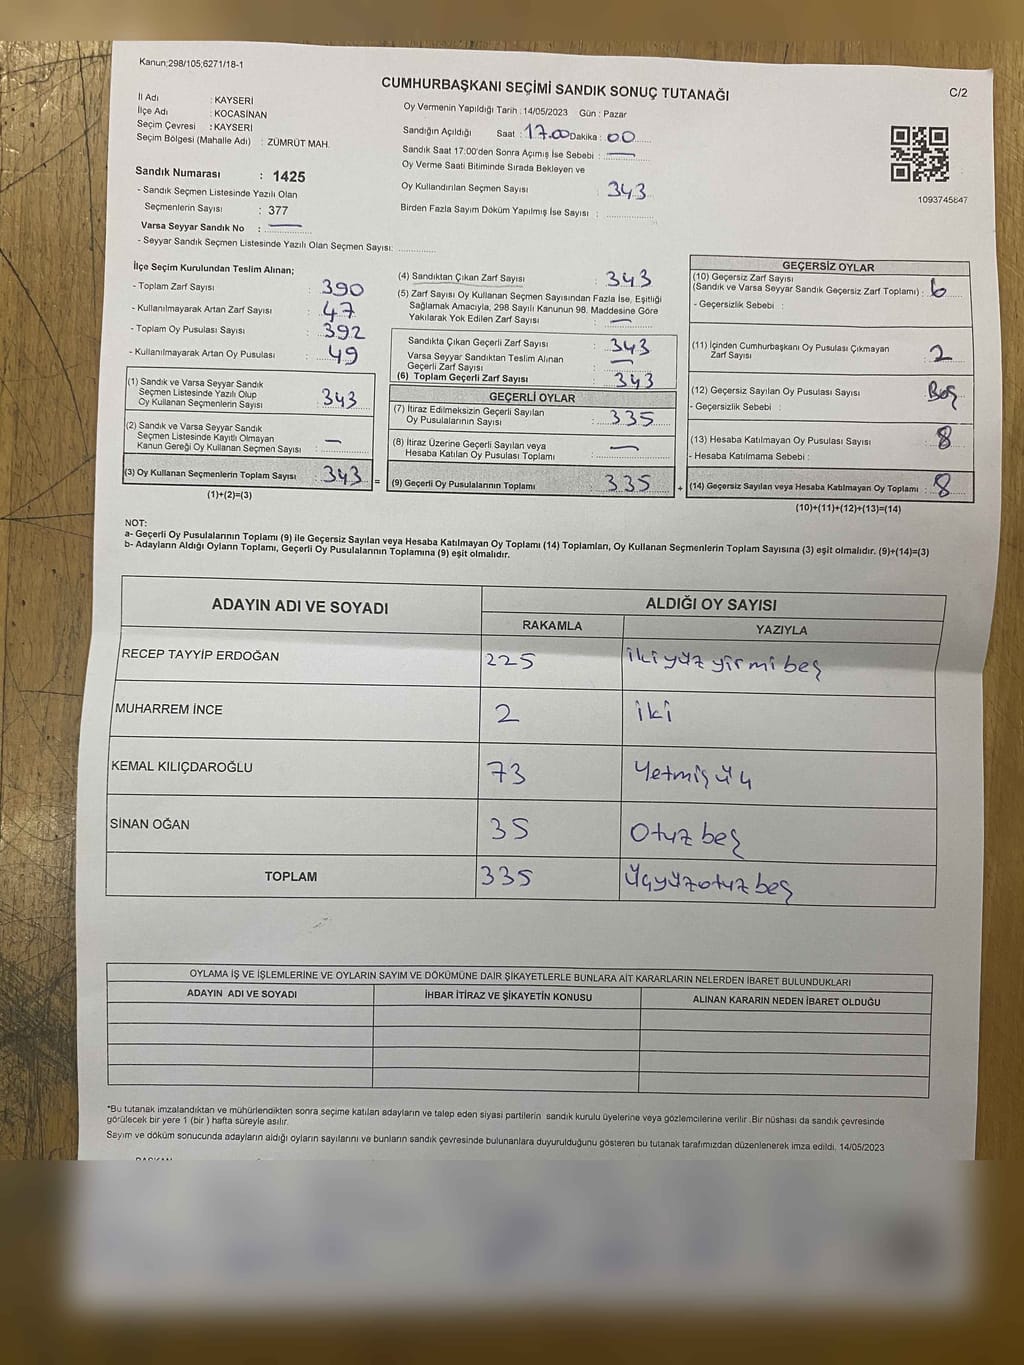 Kanun;298/105;6271/18-1
CUMHURBAŞKANI SEÇİMİ SANDIK SONUÇ TUTANAĞI
C/2
İl Adı : KAYSERİ
İlçe Adı : KOCASİNAN
Seçim Çevresi : KAYSERİ
Seçim Bölgesi (Mahalle Adı) : ZÜMRÜT MAH.
Sandık Numarası : 1425
- Sandık Seçmen Listesinde Yazılı Olan
Seçmenlerin Sayısı : 377
Varsa Seyyar Sandık No : —
- Seyyar Sandık Seçmen Listesinde Yazılı Olan Seçmen Sayısı:
Oy Vermenin Yapıldığı Tarih : 14/05/2023 Gün : Pazar
Sandığın Açıldığı Saat : 17.00 Dakika : 00
Sandık Saat 17:00'den Sonra Açımış İse Sebebi : —
Oy Verme Saati Bitiminde Sırada Bekleyen ve
Oy Kullandırılan Seçmen Sayısı : 343
Birden Fazla Sayım Döküm Yapılmış İse Sayısı :
1093745847
İlçe Seçim Kurulundan Teslim Alınan;
- Toplam Zarf Sayısı : 390
- Kullanılmayarak Artan Zarf Sayısı : 47
- Toplam Oy Pusulası Sayısı : 392
- Kullanılmayarak Artan Oy Pusulası : 49
(1) Sandık ve Varsa Seyyar Sandık
Seçmen Listesinde Yazılı Olup
Oy Kullanan Seçmenlerin Sayısı : 343
(2) Sandık ve Varsa Seyyar Sandık
Seçmen Listesinde Kayıtlı Olmayan
Kanun Gereği Oy Kullanan Seçmen Sayısı : —
(3) Oy Kullanan Seçmenlerin Toplam Sayısı : 343 =
(1)+(2)=(3)
(4) Sandıktan Çıkan Zarf Sayısı : 343
(5) Zarf Sayısı Oy Kullanan Seçmen Sayısından Fazla İse, Eşitliği
Sağlamak Amacıyla, 298 Sayılı Kanunun 98. Maddesine Göre
Yakılarak Yok Edilen Zarf Sayısı : —
Sandıkta Çıkan Geçerli Zarf Sayısı : 343
Varsa Seyyar Sandıktan Teslim Alınan
Geçerli Zarf Sayısı : —
(6) Toplam Geçerli Zarf Sayısı : 343
GEÇERLİ OYLAR
(7) İtiraz Edilmeksizin Geçerli Sayılan
Oy Pusulalarının Sayısı : 335
(8) İtiraz Üzerine Geçerli Sayılan veya
Hesaba Katılan Oy Pusulası Toplamı : —
(9) Geçerli Oy Pusulalarının Toplamı : 335 +
GEÇERSİZ OYLAR
(10) Geçersiz Zarf Sayısı
(Sandık ve Varsa Seyyar Sandık Geçersiz Zarf Toplamı) : 6
- Geçersizlik Sebebi :
(11) İçinden Cumhurbaşkanı Oy Pusulası Çıkmayan
Zarf Sayısı : 2
(12) Geçersiz Sayılan Oy Pusulası Sayısı : Boş
- Geçersizlik Sebebi :
(13) Hesaba Katılmayan Oy Pusulası Sayısı : 8
- Hesaba Katılmama Sebebi :
(14) Geçersiz Sayılan veya Hesaba Katılmayan Oy Toplamı : 8
(10)+(11)+(12)+(13)=(14)
NOT:
a- Geçerli Oy Pusulalarının Toplamı (9) ile Geçersiz Sayılan veya Hesaba Katılmayan Oy Toplamı (14) Toplamları, Oy Kullanan Seçmenlerin Toplam Sayısına (3) eşit olmalıdır. (9)+(14)=(3)
b- Adayların Aldığı Oyların Toplamı, Geçerli Oy Pusulalarının Toplamına (9) eşit olmalıdır.
ADAYIN ADI VE SOYADI
ALDIĞI OY SAYISI
RAKAMLA YAZIYLA
RECEP TAYYİP ERDOĞAN 225 ikiyüzyirmibeş
MUHARREM İNCE 2 iki
KEMAL KILIÇDAROĞLU 73 Yetmişüç
SİNAN OĞAN 35 Otuzbeş
TOPLAM 335 Üçyüzotuzbeş
OYLAMA İŞ VE İŞLEMLERİNE VE OYLARIN SAYIM VE DÖKÜMÜNE DAİR ŞİKAYETLERLE BUNLARA AİT KARARLARIN NELERDEN İBARET BULUNDUKLARI
ADAYIN ADI VE SOYADI İHBAR İTİRAZ VE ŞİKAYETİN KONUSU ALINAN KARARIN NEDEN İBARET OLDUĞU
*Bu tutanak imzalandıktan ve mühürlendikten sonra seçime katılan adayların ve talep eden siyasi partilerin sandık kurulu üyelerine veya gözlemcilerine verilir .Bir nüshası da sandık çevresinde
görülecek bir yere 1 (bir ) hafta süreyle asılır.
Sayım ve döküm sonucunda adayların aldığı oyların sayılarını ve bunların sandık çevresinde bulunanlara duyurulduğunu gösteren bu tutanak tarafımızdan düzenlenerek imza edildi. 14/05/2023